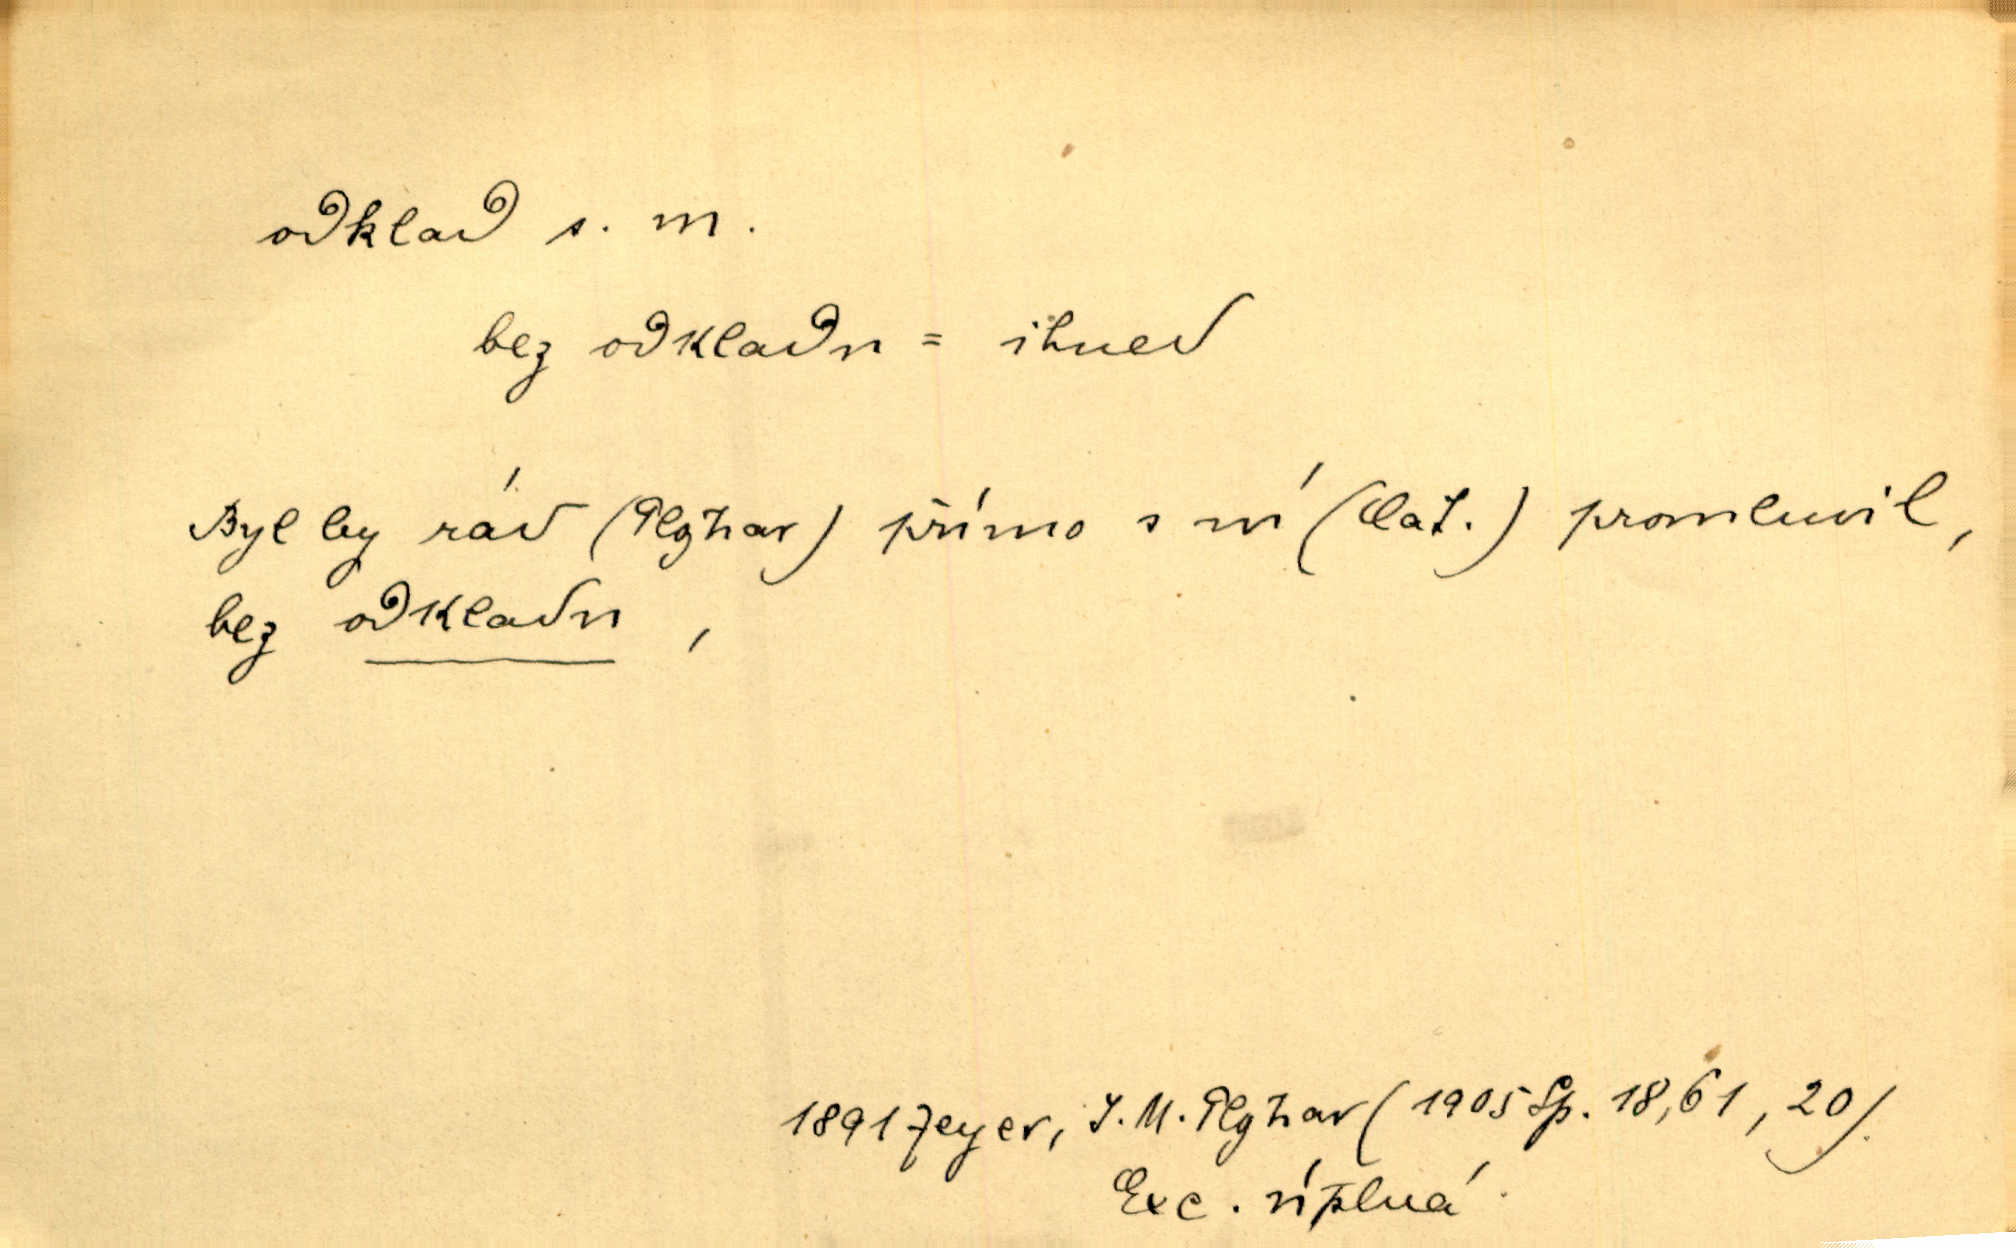 odklad s. m.
bez odkladu = ihned
Byl by rád (Plojhar) přímo s ní (Clat.) promluvil,
bez odkladu,
1891 Zeyer, J. M. Plojhar (1905 Sp. 18, 61, 20).
Exc. úplná